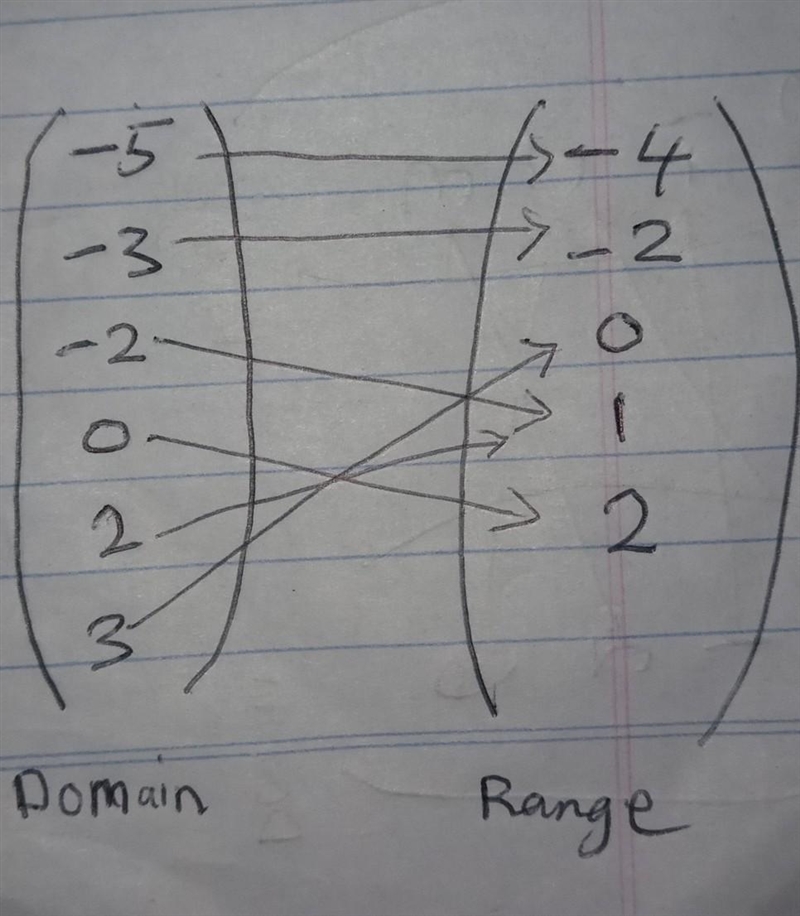 -5 -4
-3 -2
-2 0
0 1
2 2
3
Domain Range